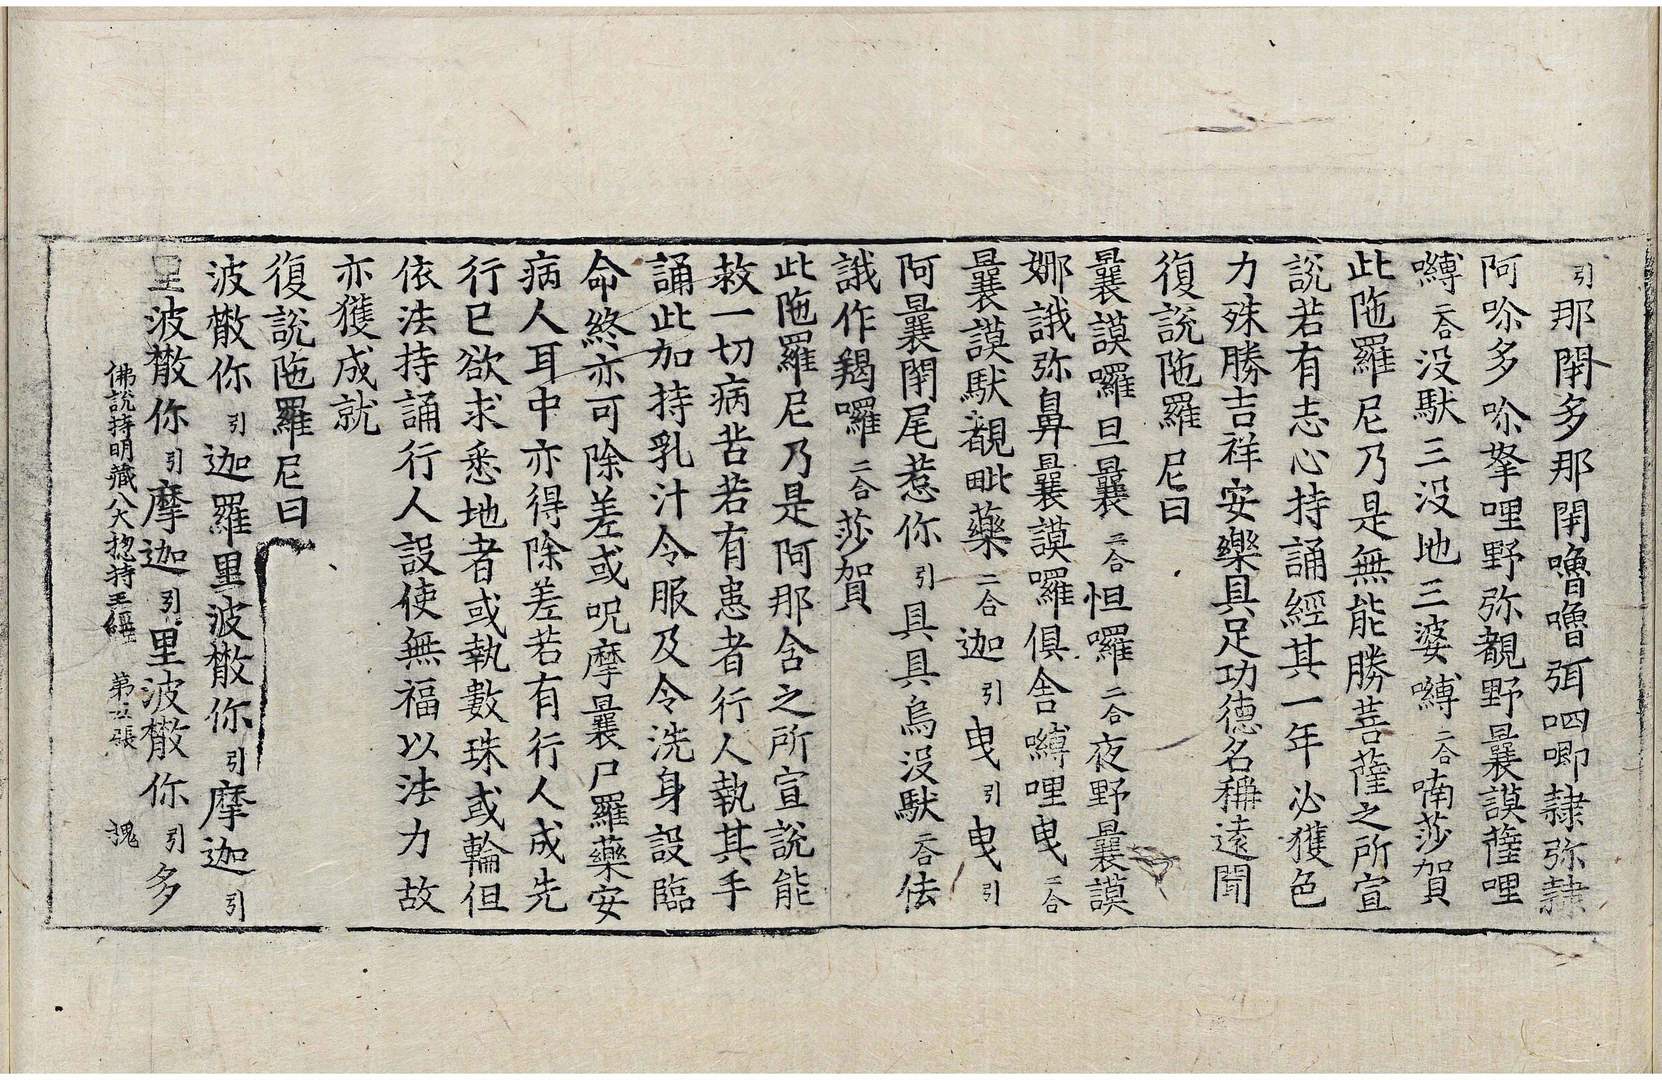 引那閉多那閉嚕嚕弭呬唧隷弥隷
阿唹多唹拏哩野弥覩野曩謨薩哩
嚩二合没馱三没地三婆嚩二合喃莎賀
此陁羅尼乃是無能勝菩薩之所宣
說若有志心持誦經其一年必獲色
力殊勝吉祥安樂具足功德名稱遠聞
復說陁羅尼曰
曩謨囉旦曩二合怛囉二合夜野曩謨
娜誐弥鼻曩謨囉俱舍嚩哩曳二合
曩謨馱覩毗藥二合迦引曳引曳引
阿曩閉尾惹你引具具烏没馱二合佉
誐作羯囉二合莎賀
此陁羅尼乃是阿那含之所宣說能
救一切病苦若有患者行人執其手
誦此加持乳汁令服及令洗身設臨
命終亦可除差或呪摩曩尸羅藥安
病人耳中亦得除差若有行人成先
行已欲求悉地者或執數珠或輪但
依法持誦行人設使無福以法力故
亦獲成就
復說陁羅尼曰
波㯙你引迦羅里波㯙你引摩迦引
里波㯙你引摩迦引里波㯙你引多
佛說持明藏八大揔持王經 第五張 槐